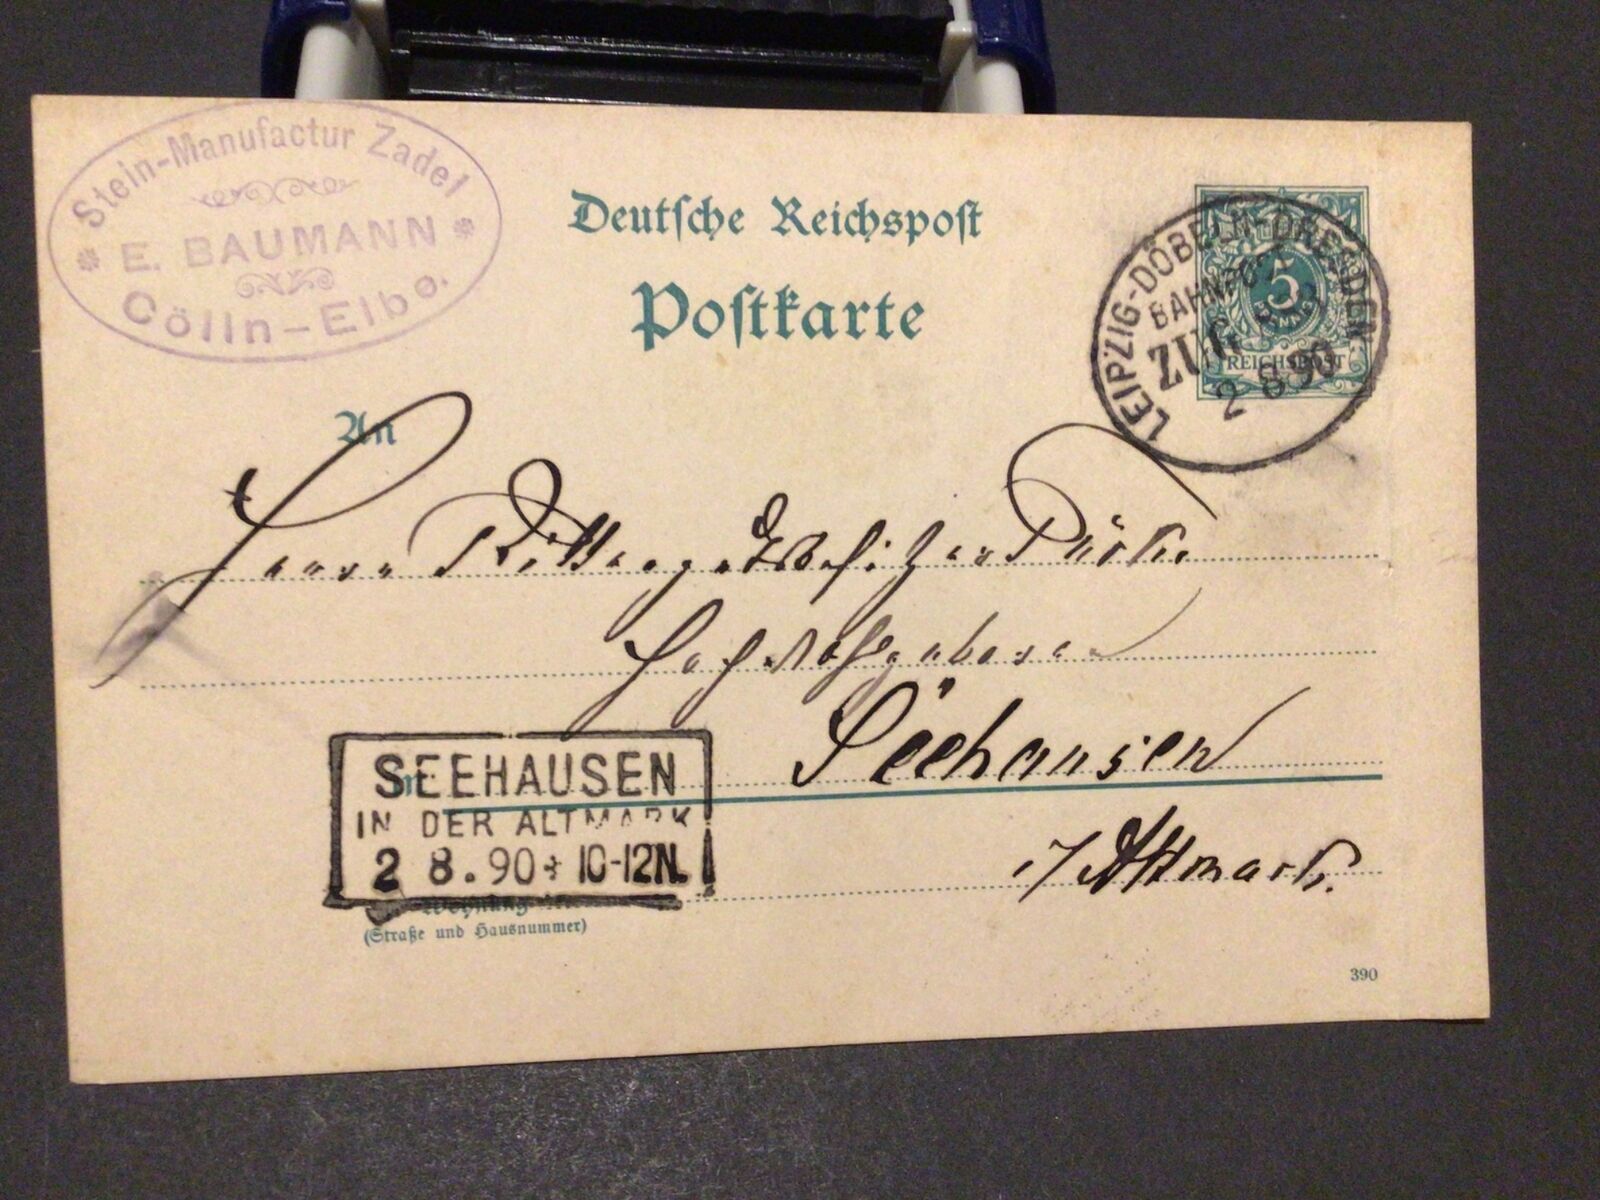 Stein-Manufactur Zadel
E. BAUMANN
Cölln-Elbe.
Deutsche Reichspost
Postkarte
LEIPZIG-DÖBELN-DRESDEN.
BAHNPOST
ZUG
2 8 90
5
PFENNIG
REICHSPOST
An
Herrn Rittergutsbesitzer
Hochwohlgeboren
Seehausen
i/Altmark.
SEEHAUSEN
IN DER ALTMARK
2 8.90 10-12N.
Wohnung
(Straße und Hausnummer)
390